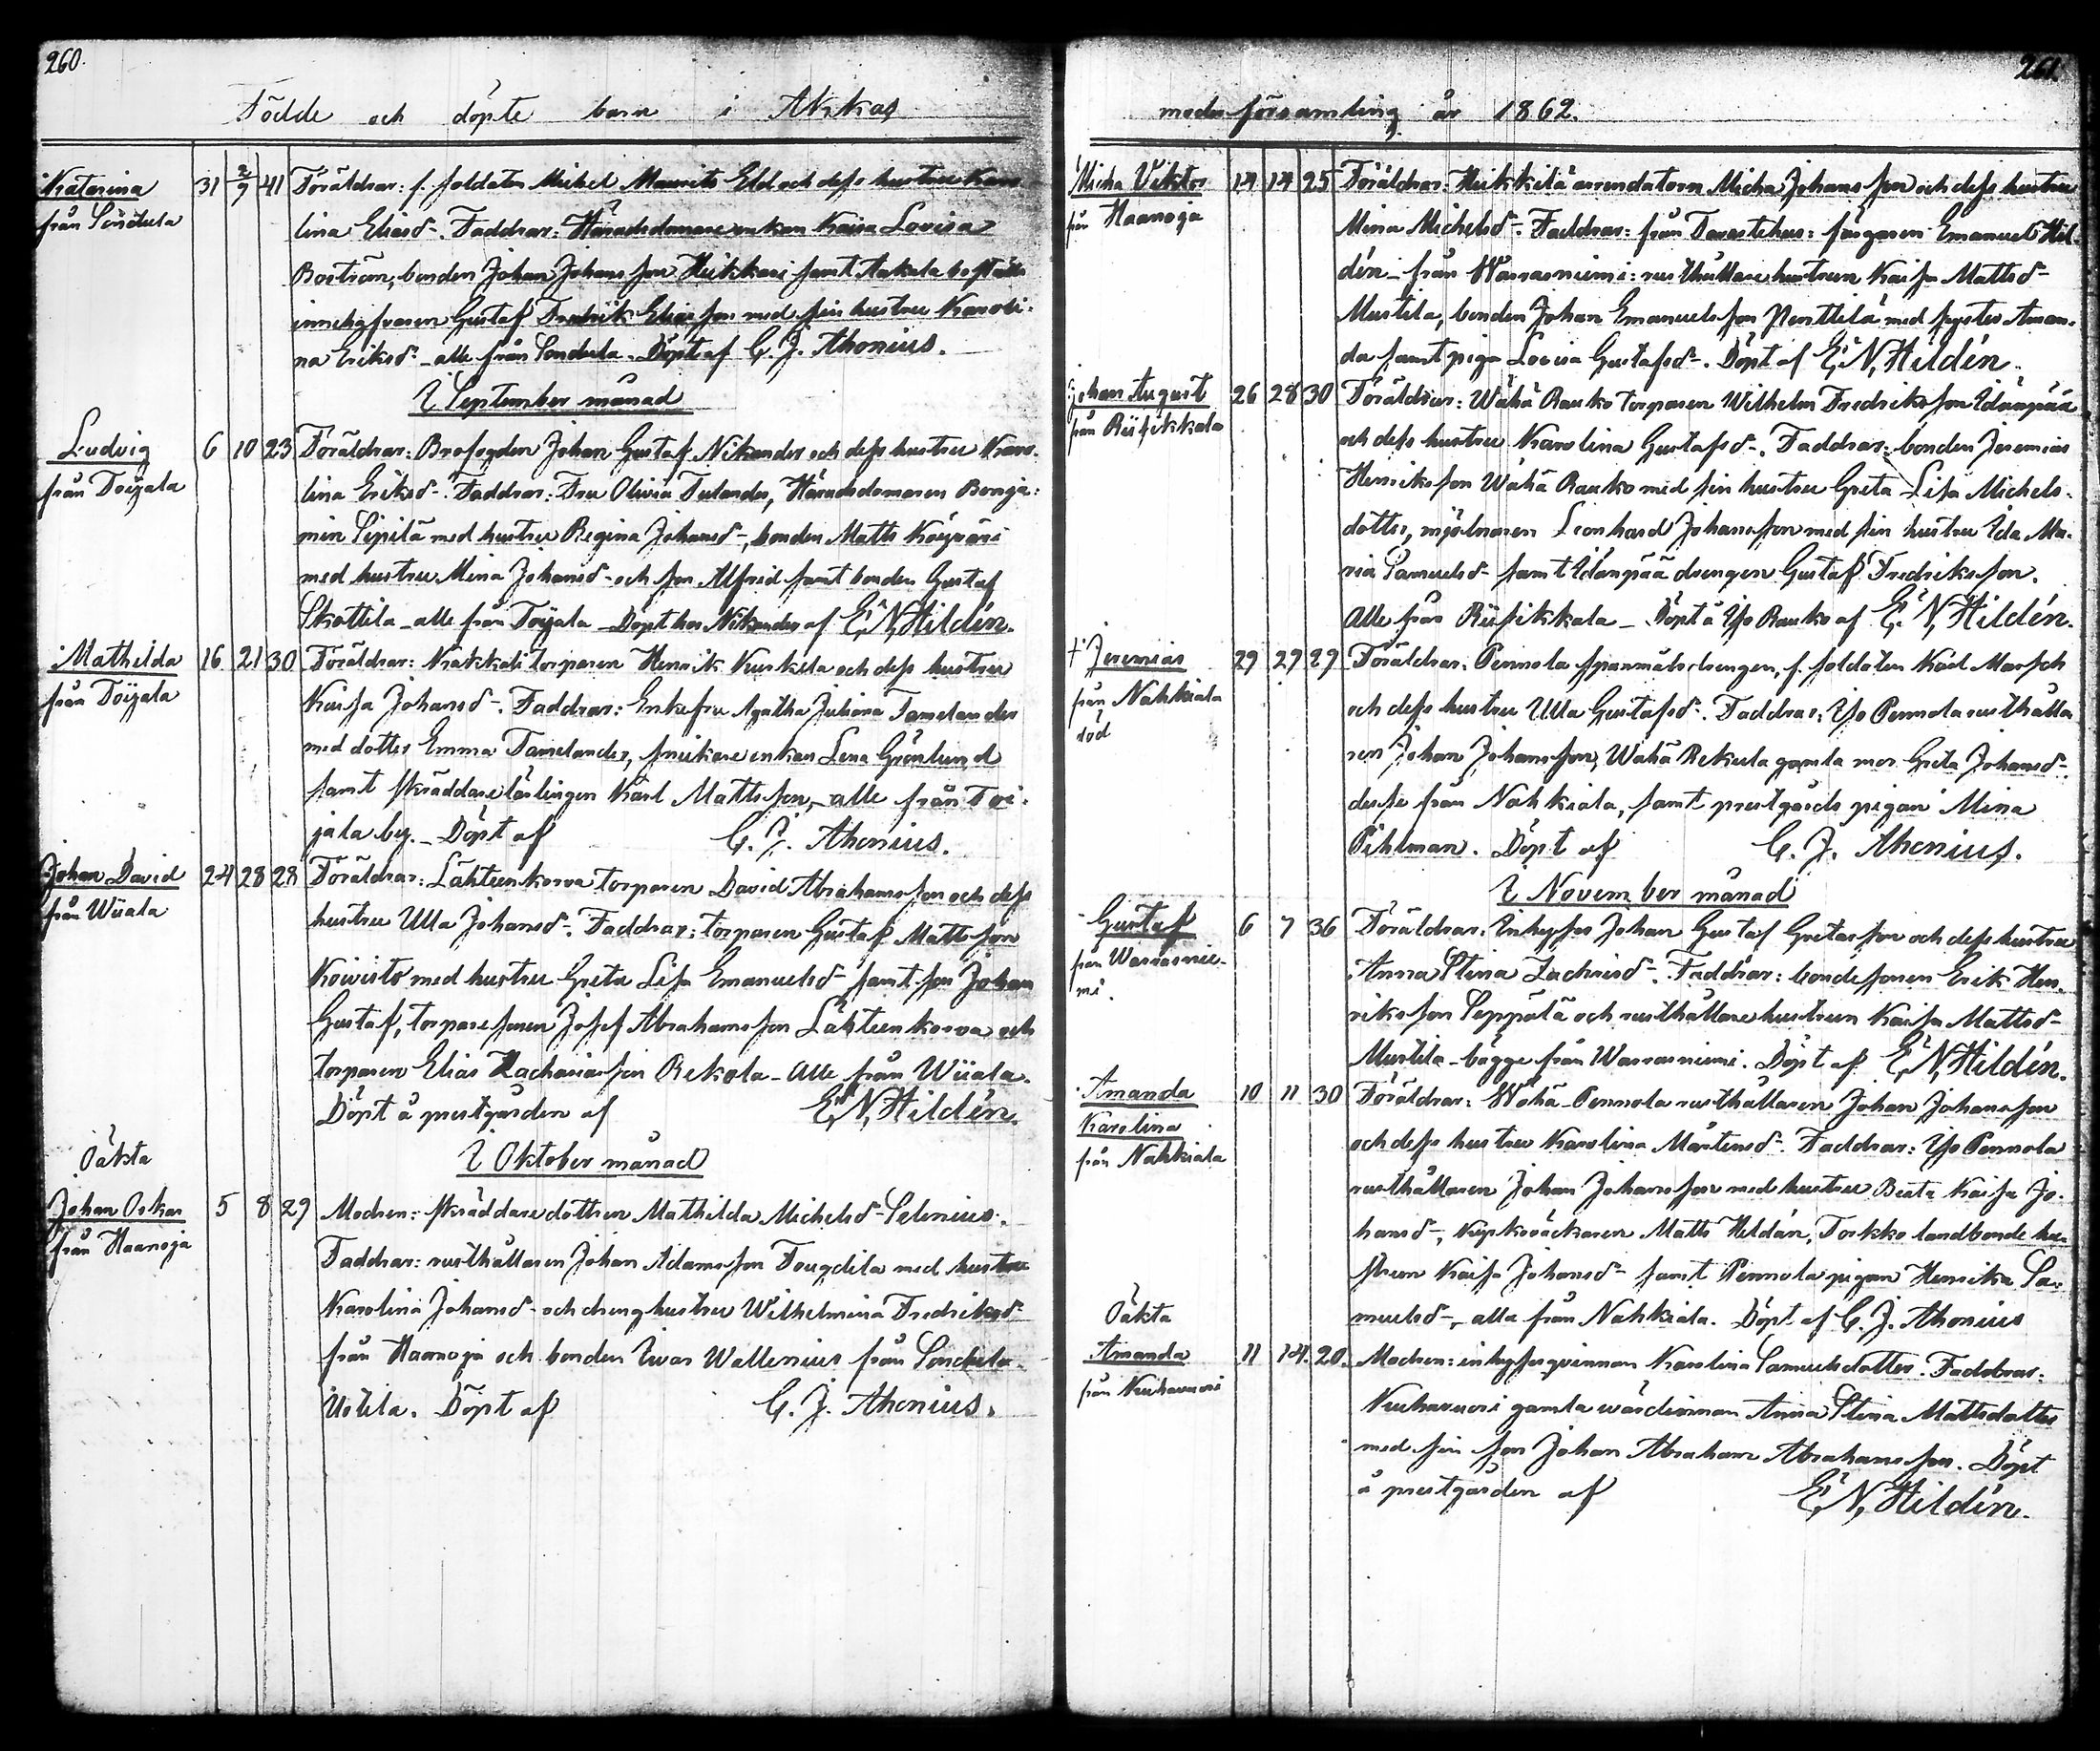 260.
Födde och döpte barn i Akkas
Katarina 31 2/9 41 Föräldrar: f. soldaten Michel Maurits Eld och dess hustru Karo
från Sondula lina Eliasd-. Faddrar: Häradsdomare enkan Kaisa Lovisa
Boström, bonden Johan Johansson Heikkari samt Ankala
Gustaf Fredrik Eliasson med sin hustru Karoli-
na Eriksd- alle från Sondula. Döpt af C. J. Ahonius.
I September månad
Ludvig 6 10 23 Föräldrar: Brofogden Johan Gustaf Nikander och dess hustru Karo-
från Toijala lina Eriksd-. Faddrar: Fru Olivia Tulander, Häradsdomaren Benja-
min Sipilä med hustru Regina Johansd-, bonden Matts
med hustru Mina Johansd- och son Alfred samt bonden Gustaf
Skottila - alle från Toijala - Döpt hos Nikander af E. N. Hildén.
Mathilda 16 21 30 Föräldrar: torparen Henrik Kurkela och dess hustru
från Toijala Kaisa Johansd-. Faddrar: Enkefru Agatha Juliana Tamelander
med dotter Emma Tamelander, snickare enkan Lena Grönlund
samt skräddarelärlingen Karl Mattsson, - alle från Toi-
jala by. - Döpt af C. J. Ahonius.
Johan David 24 28 28 Föräldrar: Lähteenkorva torparen David Abrahamsson och dess
från Wiiala hustru Ulla Johansd-. Faddrar: torparen Gustaf Mattsson
Koivisto med hustru Greta Lisa Emanuelsd- samt son Johan
Gustaf, torparesonen Josef Abrahamsson Lähteenkorva och
torparen Elias Zachariasson Rekola - Alle från Wiiala.
Döpt å prestgården af E. N. Hildén.
I Oktober månad
Oäkta
Johan Oskar 5 8 29 Modren: skräddaredottren Mathilda Michelsd- Selenius.
från Haanoja Faddrar: rusthållaren Johan Adamsson Fougdila med hustru
Karolina Johansd- och dränghustru Wilhelmina Fredriksd-
från Haanoja och bonden Ivar Wallenius från Sondula
Uotila. Döpt af C. J. Ahonius.
261.
moderförsamling år 1862.
Micha Viktor 14 14 25 Föräldrar: Heikkilä arrendatorn Micha Johansson och dess hustru
från Haanoja Mina Michelsd-. Faddrar: från Tavastehus: färgaren Emanuel Hil-
dén - från Warrasniemi: rusthållarehustrun Kaisa Mattsd-
Mustila, bonden Johan Emanuelsson Penttilä med syster Aman-
da samt piga Lovisa Gustafsd-. Döpt af E. N. Hildén.
Johan August 26 28 30 Föräldrar: Wähä Rauko torparen Wilhelm Fredriksson Idänpää
från Riisikkala och dess hustru Karolina Gustafsd-. Faddrar: bonden Jeremias
Henriksson Wähä Rauko med sin hustru Greta Lisa Michels-
dotter, mjölnaren Leonhard Johansson med sin hustru Ida Ma-
ria Samuelsd- samt Idänpää drengen Gustaf Fredriksson.
Alle från Riisikkala - Döpt å Iso Rauko af E. N. Hildén.
† Jeremias 29 29 29 Föräldrar: Pennola spanmålsdrengen, f. soldaten Karl Marsch
från Nahkiala och dess hustru Ulla Gustafsd-. Faddrar: Iso Pennola rusthålla-
död ren Johan Johansson, Wähä Rekula gamla mor Greta Johansd-
desse från Nahkiala, samt prestgårds pigan Mina
Pihlman. Döpt af C. J. Ahonius.
I November månad
Gustaf 6 7 36 Föräldrar: Inhyses Johan Gustaf Gretasson och dess hustru
från Warrasnie- Anna Stina Zachrisd-. Faddrar: bondesonen Erik Hen-
mi. riksson Seppälä och rusthållarehustrun Kaisa Mattsd-
Mustila - bägge från Warrasniemi. Döpt af E. N. Hildén.
Amanda 10 11 30 Föräldrar: Wähä-Pennola rusthållaren Johan Johansson
Karolina och dess hustru Karolina Mårtensd-. Faddrar: Iso Pennola
från Nahkiala rusthållaren Johan Johansson med hustru Beata Kaisa Jo-
hansd-, kyrkoväktaren Matts Heldán, Torkko landbonde hu-
strun Kaisa Johansd- samt Pennola pigan Henrika Sa-
muelsd-, alla från Nahkiala. Döpt af C. J. Ahonius
Oäkta
Amanda 11 14. 20. Modren: inhysesqvinnan Karolina Samuelsdotter. Faddrar:
från Keuhavuori Keuhavuori gamla wärdinnan Anna Stina Mattsdotter
med sin son Johan Abraham Abrahamsson. Döpt
å prestgården af E. N. Hildén.